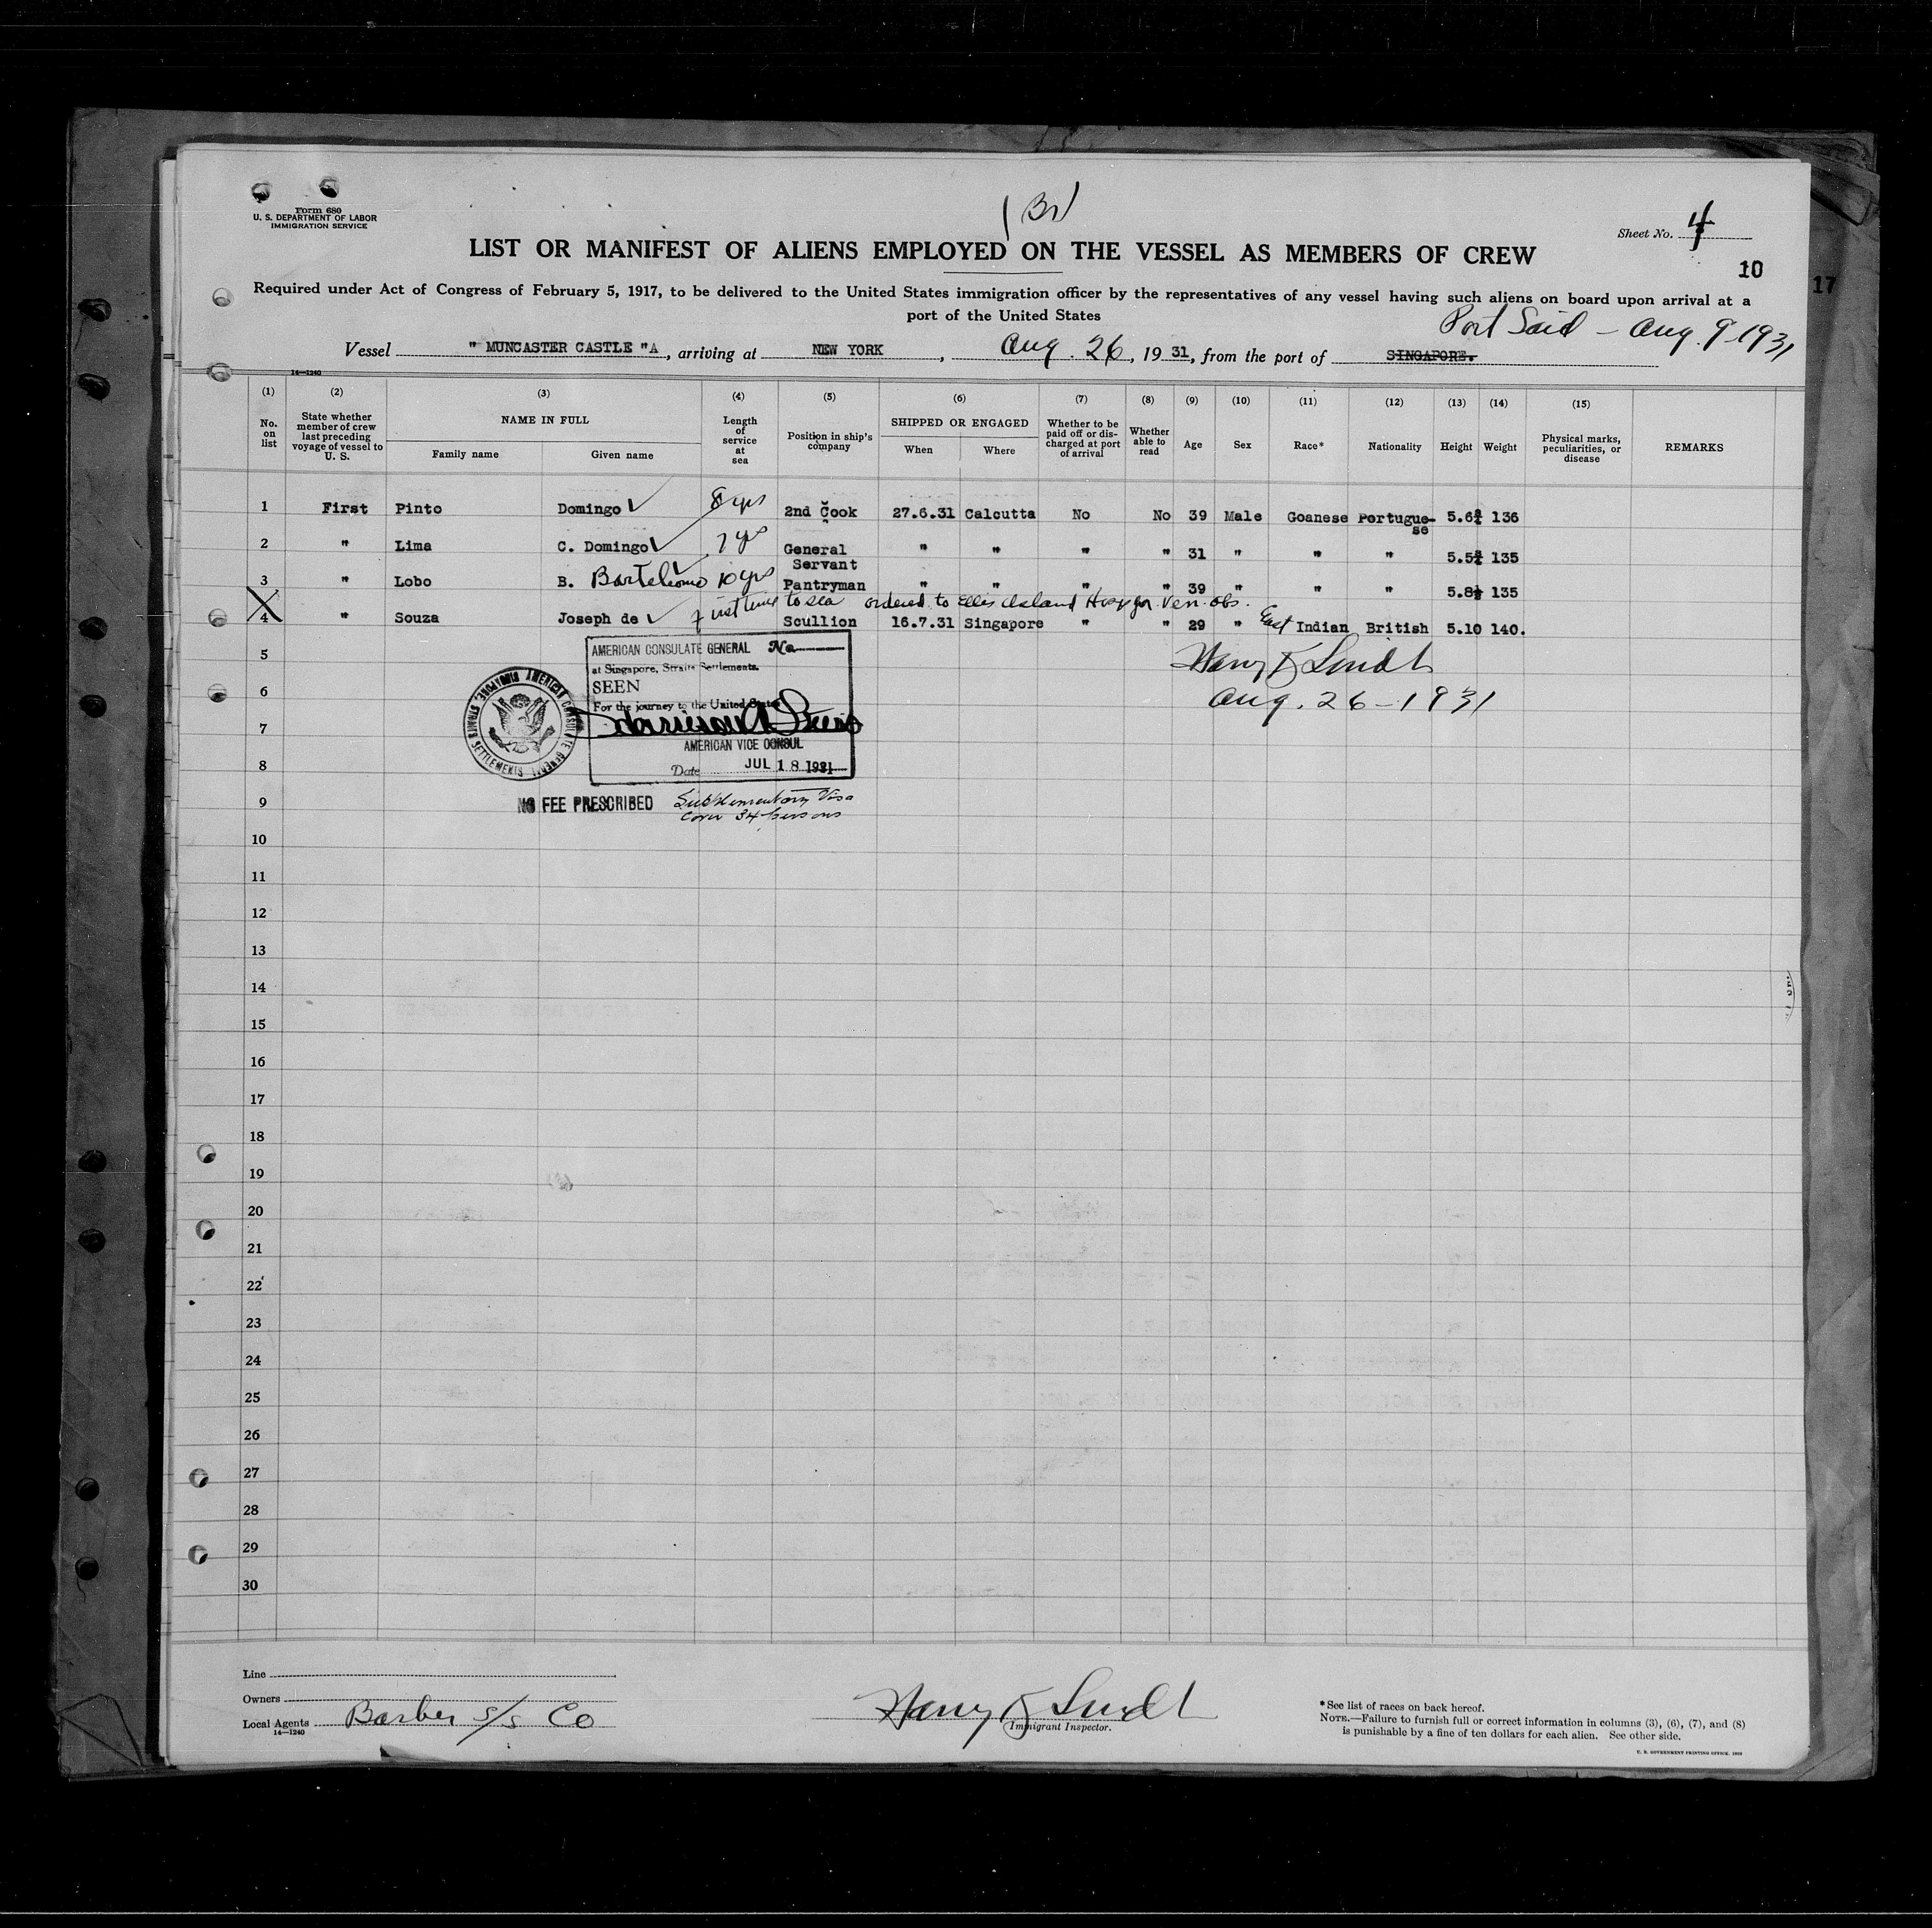 Form 680
U. S. DEPARTMENT OF LABOR
IMMIGRATION SERVICE
Sheet No. 4
LIST OR MANIFEST OF ALIENS EMPLOYED ON THE VESSEL AS MEMBERS OF CREW
10
17
Required under Act of Congress of February 5, 1917, to be delivered to the United States immigration officer by the representatives of any vessel having such aliens on board upon arrival at a
port of the United States
Port Said - Aug. 9 - 1931
Vessel " MUNCASTER CASTLE "A, arriving at NEW YORK, Aug. 26, 1931, from the port of SINGAPORE.
14—1240
(1) (2) (3) (4) (5) (6) (7) (8) (9) (10) (11) (12) (13) (14) (15)
No. on list
State whether member of crew last preceding voyage of vessel to U. S.
NAME IN FULL
Family name Given name
Length of service at sea
Position in ship's company
SHIPPED OR ENGAGED
When Where
Whether to be paid off or discharged at port of arrival
Whether able to read
Age Sex Race* Nationality Height Weight
Physical marks, peculiarities, or disease
REMARKS
1 First Pinto Domingo 8 yrs 2nd Cook 27.6.31 Calcutta No No 39 Male Goanese Portugue-se 5.6¾ 136
2 " Lima C. Domingo 7 yrs General Servant " " " " 31 " " " 5.5¾ 135
3 " Lobo B. Bartelomo 10 yrs Pantryman " " " " 39 " " " 5.8½ 135
first time to sea ordered to Ellis Island Hosp for Ven. obs.
4 " Souza Joseph de Scullion 16.7.31 Singapore " " 29 " East Indian British 5.10 140.
5
Aug. 26 - 1931
AMERICAN CONSULATE GENERAL No
at Singapore, Straits Settlements.
SEEN
For the journey to the United States
AMERICAN VICE CONSUL
Date JUL 18 1931
AMERICAN CONSULATE GENERAL
SINGAPORE, STRAITS SETTLEMENTS
NO FEE PRESCRIBED Supplementary Visa
Cover 34 persons
6
7
8
9
10
11
12
13
14
15
16
17
18
19
20
21
22
23
24
25
26
27
28
29
30
Line
Owners
Local Agents Barber S/S Co
14—1240
Immigrant Inspector.
*See list of races on back hereof.
NOTE.—Failure to furnish full or correct information in columns (3), (6), (7), and (8)
is punishable by a fine of ten dollars for each alien. See other side.